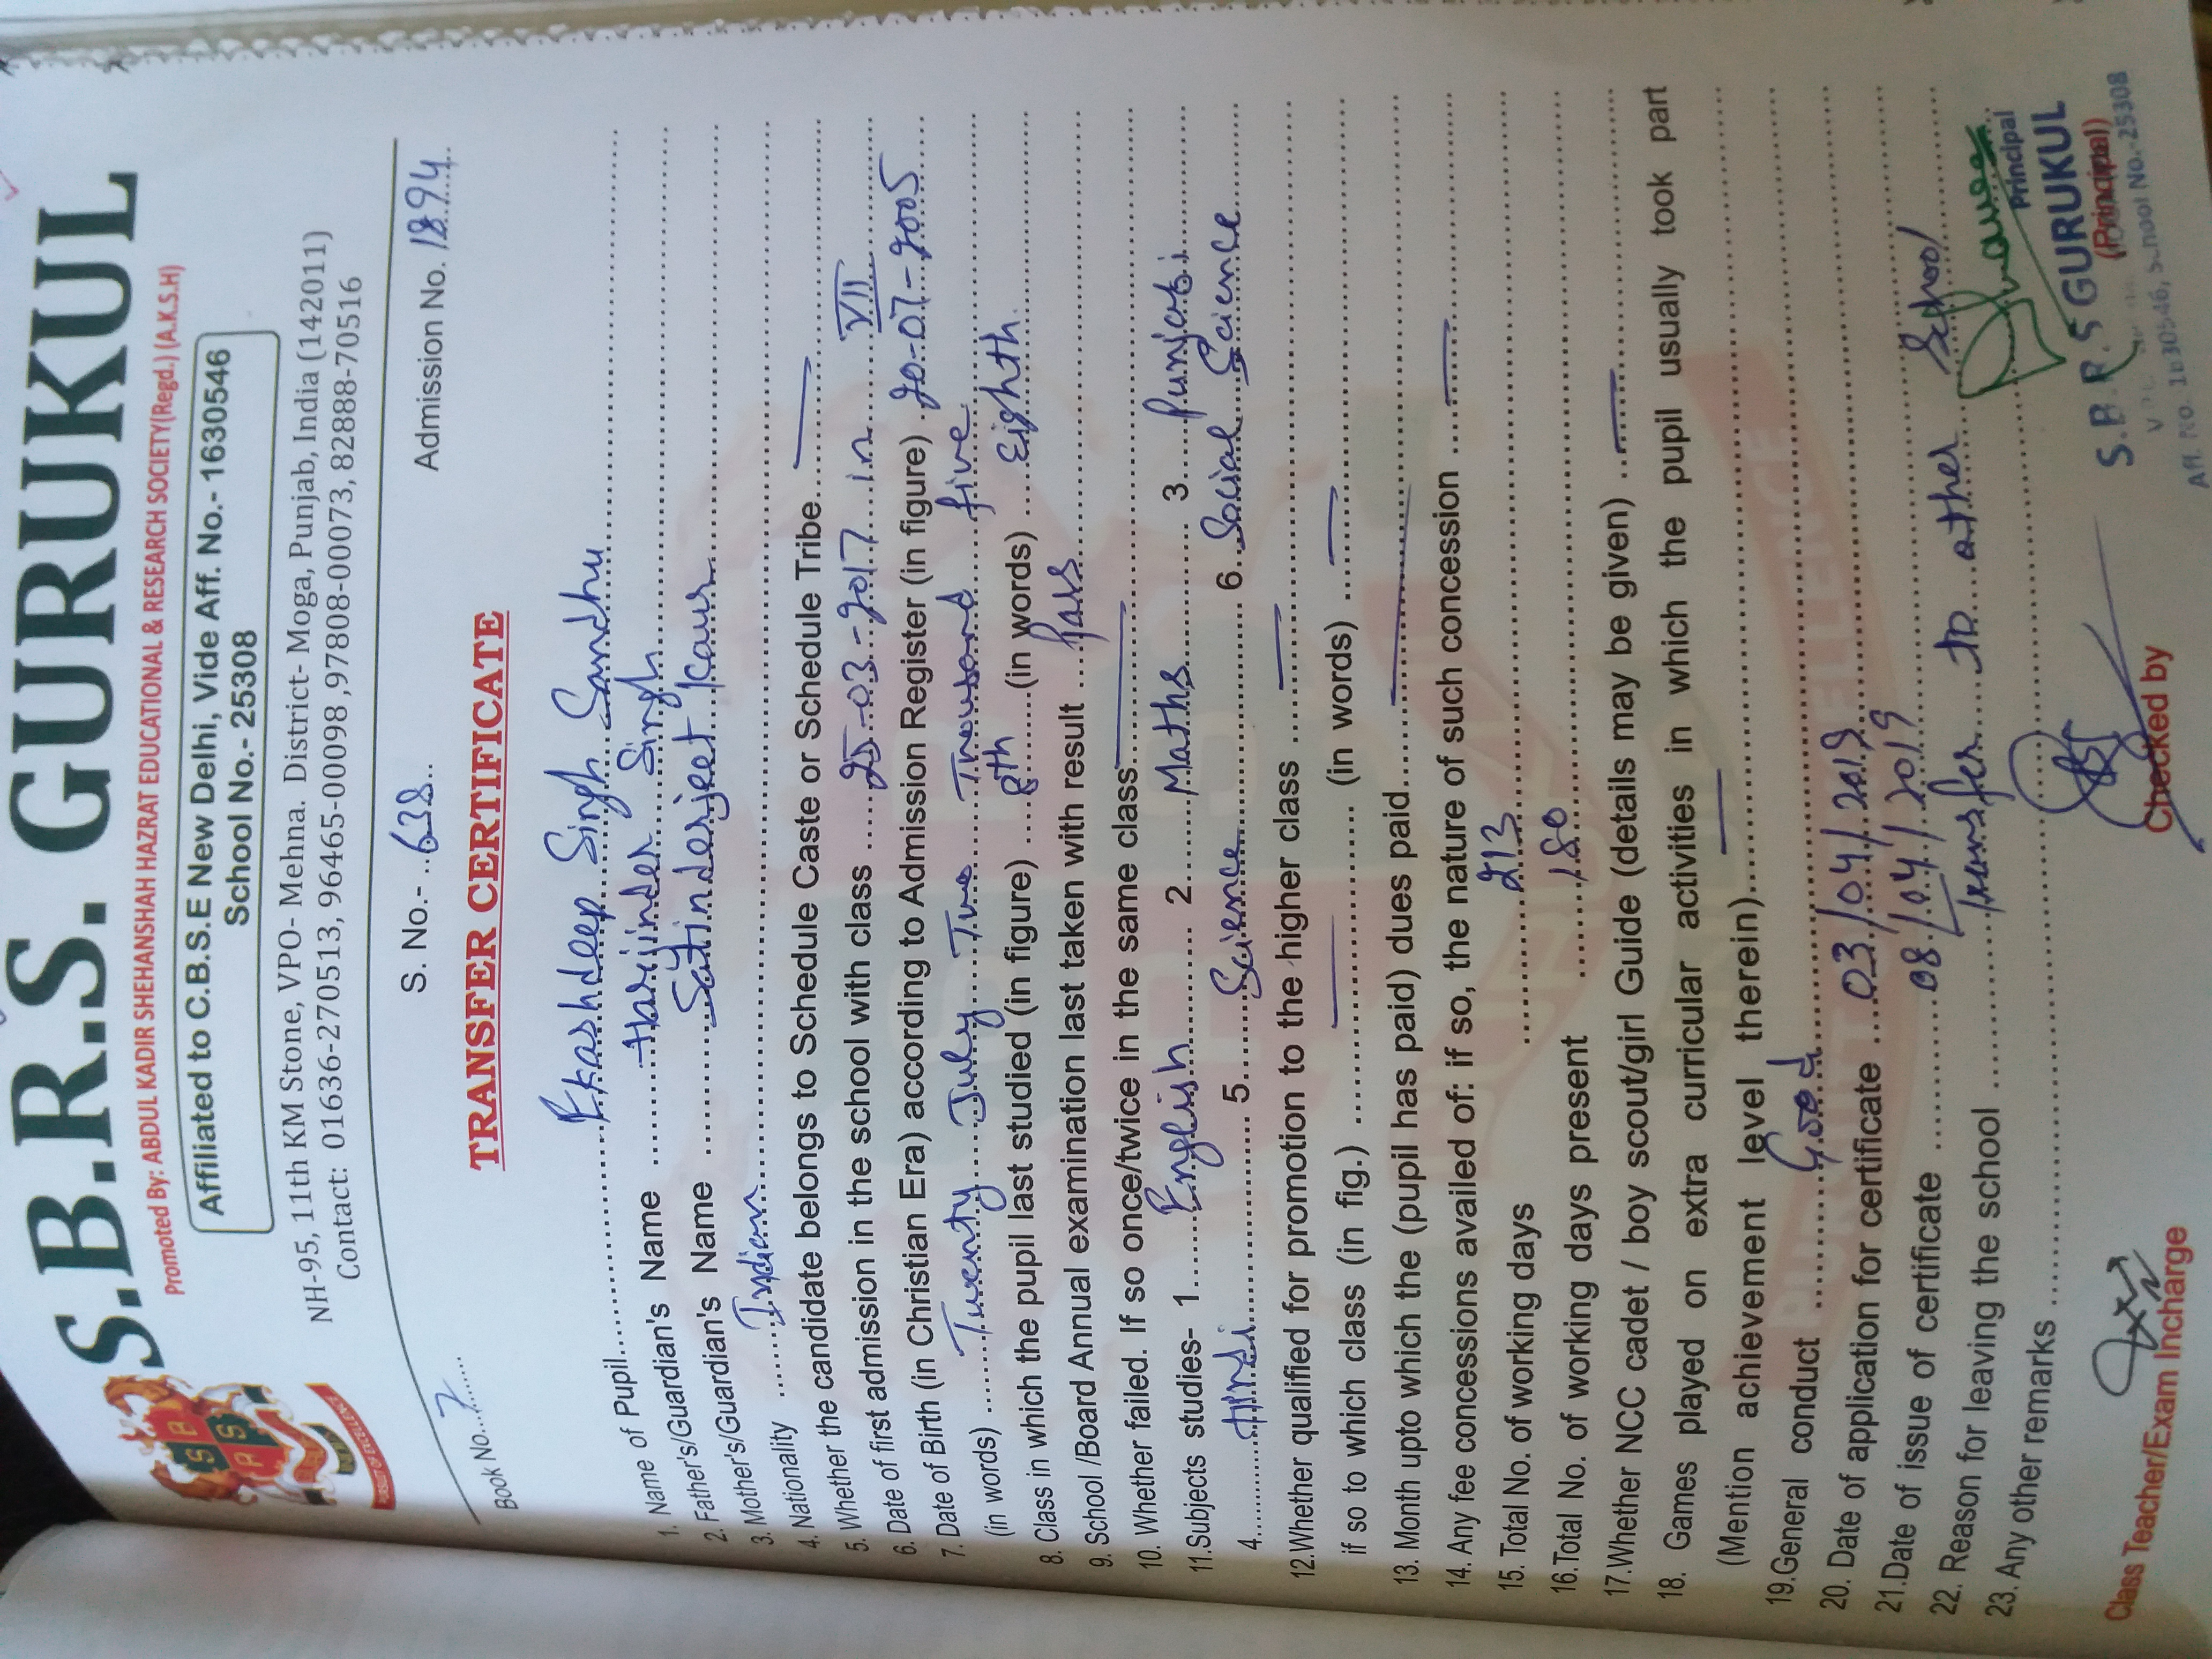 S.B.R.S. GURUKUL
Promoted By: ABDUL KADIR SHEHANSHAH HAZRAT EDUCATIONAL & RESEARCH SOCIETY(Regd.) (A.K.S.H)
Affiliated to C.B.S.E New Delhi, Vide Aff. No.- 1630546
School No.- 25308
NH-95, 11th KM Stone, VPO- Mehna. District- Moga, Punjab, India (142011)
Contact: 01636-270513, 96465-00098 ,97808-00073, 82888-70516
Book No...7...... S. No.- ..638.. Admission No. 1894
TRANSFER CERTIFICATE
1. Name of Pupil...Ekashdeep Singh Sandhu
2. Father's/Guardian's Name ...Harjinder Singh
3. Mother's/Guardian's Name ...Satinderjeet Kaur
4. Nationality ...Indian
5. Whether the candidate belongs to Schedule Caste or Schedule Tribe...—
6. Date of first admission in the school with class ...25-03-2017 in VII
7. Date of Birth (in Christian Era) according to Admission Register (in figure) 20-07-2005
(in words) ...Twenty July Two Thousand five
8. Class in which the pupil last studied (in figure) ...8th...(in words) ...Eighth
9. School /Board Annual examination last taken with result ...Pass
10. Whether failed. If so once/twice in the same class...—
11.Subjects studies- 1...English... 2...Maths... 3...Punjabi
4...Hindi... 5...Science... 6..Social Science
12.Whether qualified for promotion to the higher class ...—
if so to which class (in fig.) ...—... (in words) ...—
13. Month upto which the (pupil has paid) dues paid...—
14. Any fee concessions availed of: if so, the nature of such concession ...—
15. Total No. of working days ...213
16.Total No. of working days present ...180
17.Whether NCC cadet / boy scout/girl Guide (details may be given) ...—
18. Games played on extra curricular activities in which the pupil usually took part
(Mention achievement level therein)...—
19.General conduct ...Good
20. Date of application for certificate ...03/04/2019
21.Date of issue of certificate ...08/04/2019
22. Reason for leaving the school ...transfer to other School
23. Any other remarks
Principal
S.B.R.S GURUKUL
(Principal)
Aff. No. 1630546, School No.-25308
Class Teacher/Exam Incharge Checked by
S B
P S
PURSUIT OF EXCELLENCE